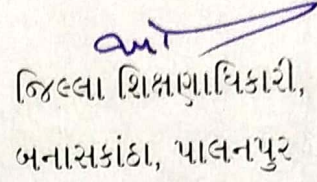 જિલ્લા શિક્ષણાધિકારી,
બનાસકાંઠા, પાલનપુર